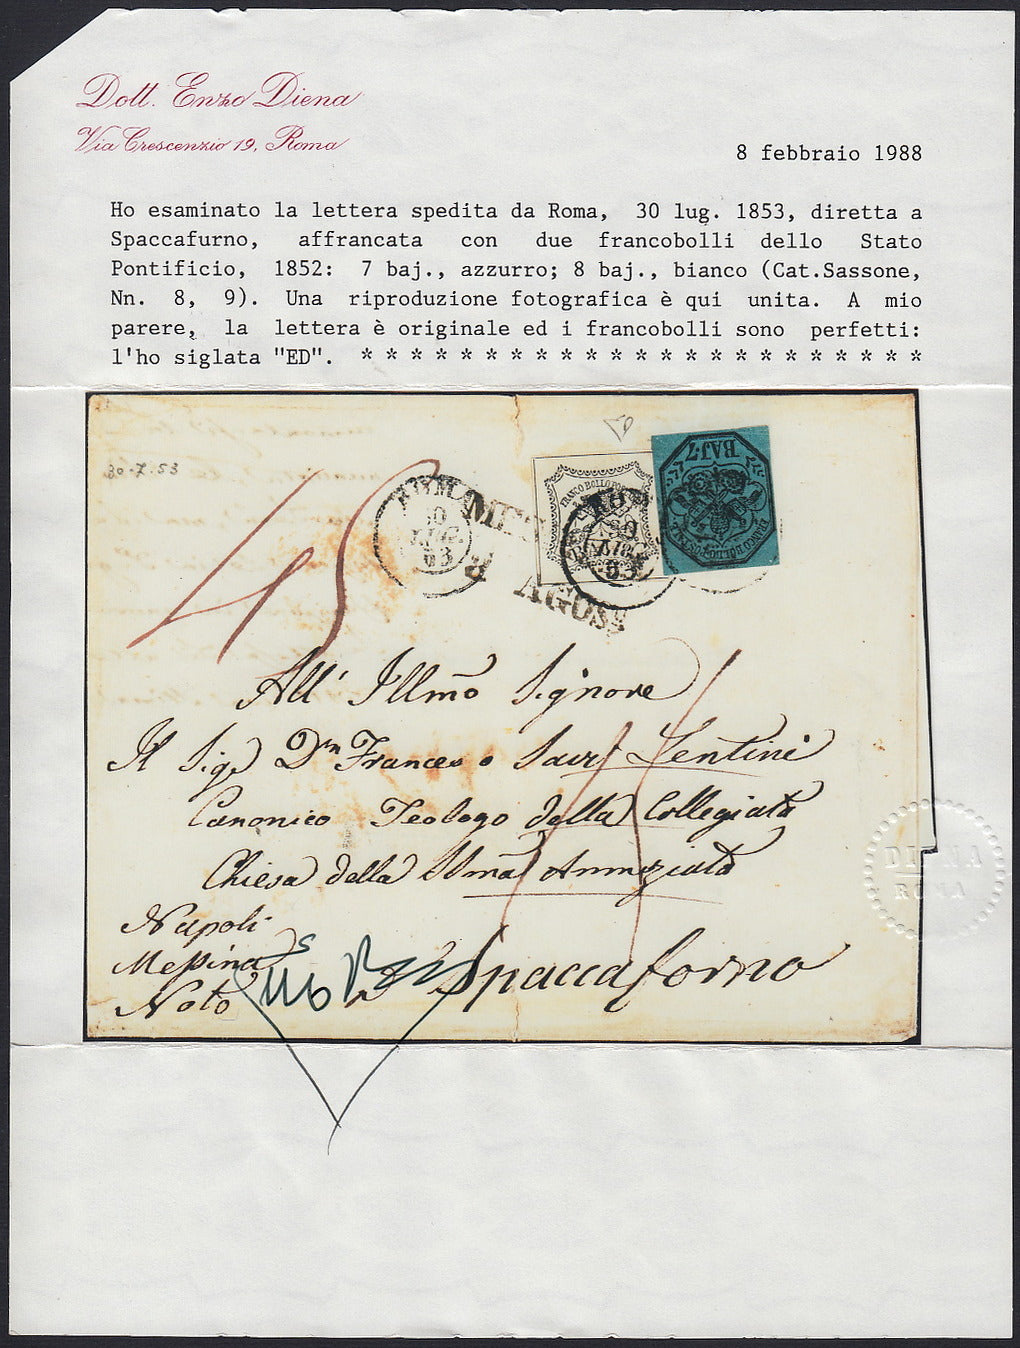 Dott. Enzo Diena
Via Crescenzio 19, Roma
8 febbraio 1988
Ho esaminato la lettera spedita da Roma, 30 lug. 1853, diretta a
Spaccafurno, affrancata con due francobolli dello Stato
Pontificio, 1852: 7 baj., azzurro; 8 baj., bianco (Cat.Sassone,
Nn. 8, 9). Una riproduzione fotografica è qui unita. A mio
parere, la lettera è originale ed i francobolli sono perfetti:
l'ho siglata "ED". * * * * * * * * * * * * * * * * * * * * * * *
30-7-53
45
ROMA
30
LUG.
53
8
AGOS
FRANCO BOLLO
BAJ.7
FRANCO BOLLO POSTALE
All' Illmo Signore
Il Sigr Dn Francesco Savr Lentini
Canonico Teologo della Collegiata
Chiesa della SSma Annunziata
Napoli
Messina
Noto
Spaccaforno
DIENA
ROMA